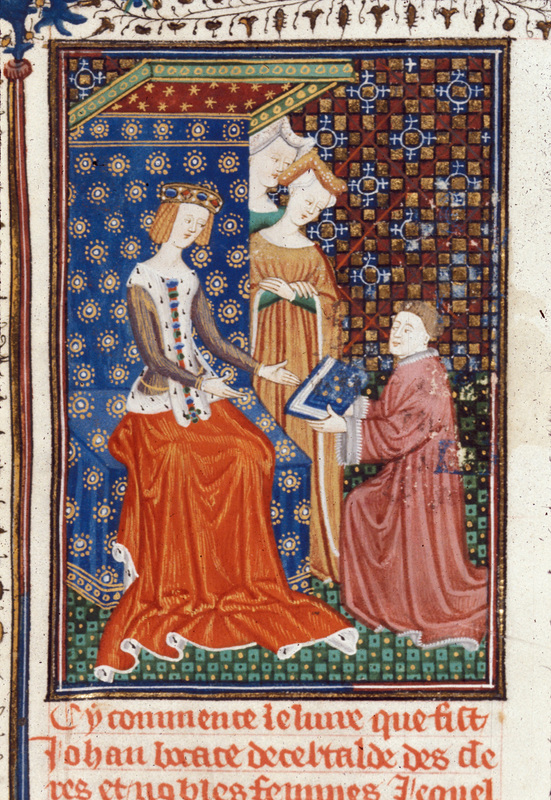 Cy commence le livre que fist
Johan bocace de certalde des cle
res et nobles femmes Lequel